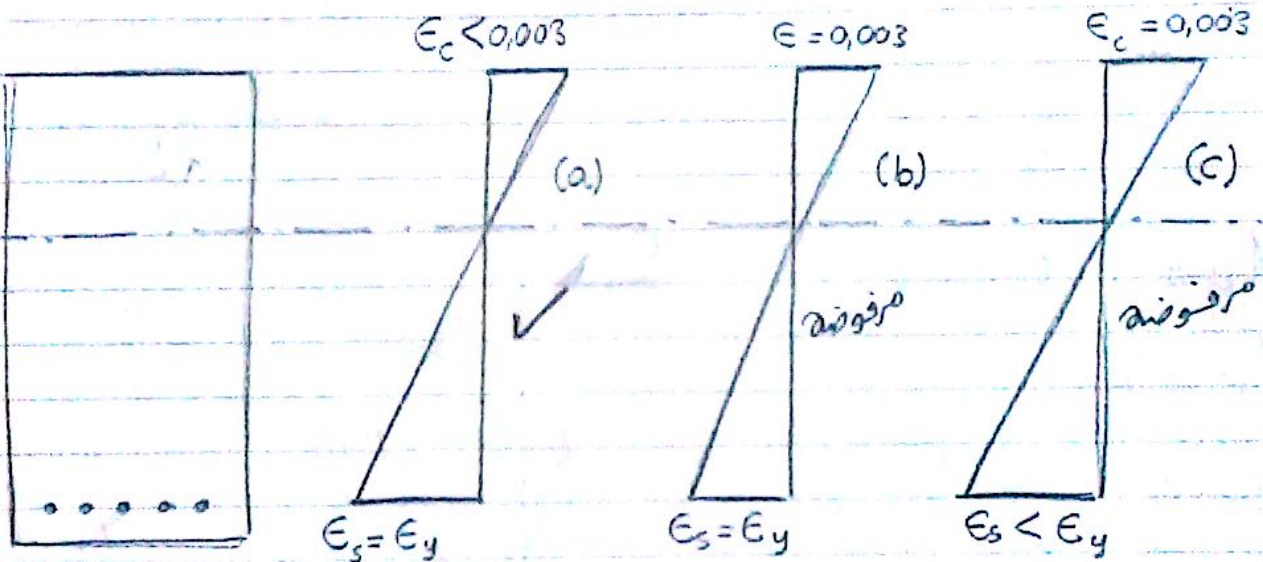 ϵc < 0,003 ϵ = 0,003 ϵc = 0,003
(a) (b) (c)
✓ مرفوضه مرفوضه
ϵs = ϵy ϵs = ϵy ϵs < ϵy